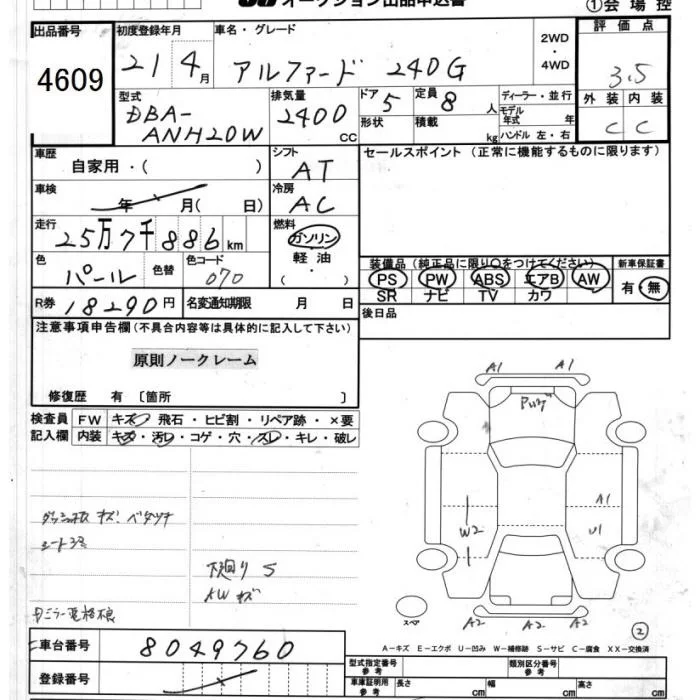 オークション出品申込書 ①会場控
出品番号 初度登録年月 車名・グレード 2WD・4WD 評価点
4609 21 4月 アルファード 240G 3.5
型式 排気量 ドア 定員 ディーラー・並行 外装 内装
DBA-ANH20W 2400cc 5 8人 モデル年式 年 C C
形状 積載 kg ハンドル 左・右
車歴 シフト セールスポイント (正常に機能するものに限ります)
自家用・( ) AT
車検 冷房
年 月( 日) AC
走行 燃料
25万7千886km ガソリン
軽油・( )
色 色替 色コード
パール 070
装備品 (純正品に限り○をつけてください) 新車保証書
PS PW ABS エアB AW 有・無
SR ナビ TV カワ
R券 18290円 名変通知期限 月 日 後日品
注意事項申告欄(不具合内容等は具体的に記入して下さい)
原則ノークレーム
修復歴 有 〔箇所 〕
検査員 FW キズ・飛石・ヒビ割・リペア跡・×要
記入欄 内装 キズ・汚レ・コゲ・穴・スレ・キレ・破レ
A1 A1
ダッシュ板 キズ・ベタツキ
シート
下廻り S
AWキズ
ミラー電格不良
W2 A1
U1
スペア A2 A2 A2
②
A-キズ E-エクボ U-凹み W-補修跡 S-サビ C-腐食 XX-交換済
車台番号 8049760
登録番号
型式指定番号 参考 類別区分番号 参考
車庫証明用 参考 長さ cm 幅 cm 高さ cm